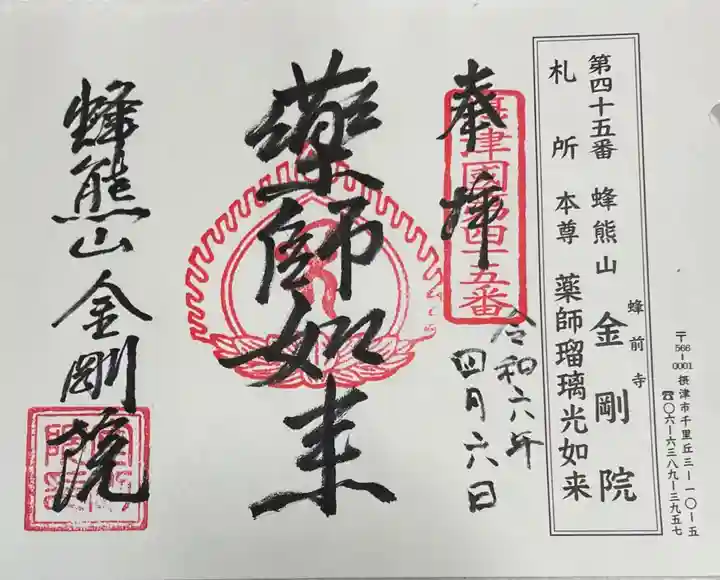 〒566-0001 摂津市千里丘三ー一〇ー五
☎〇六ー六三八九ー三九五七
第四十五番 蜂熊山 蜂前寺 金剛院
札所本尊 薬師瑠璃光如来
奉拝
摂津國第四十五番
令和六年
四月六日
薬師如来
蜂熊山 金剛院